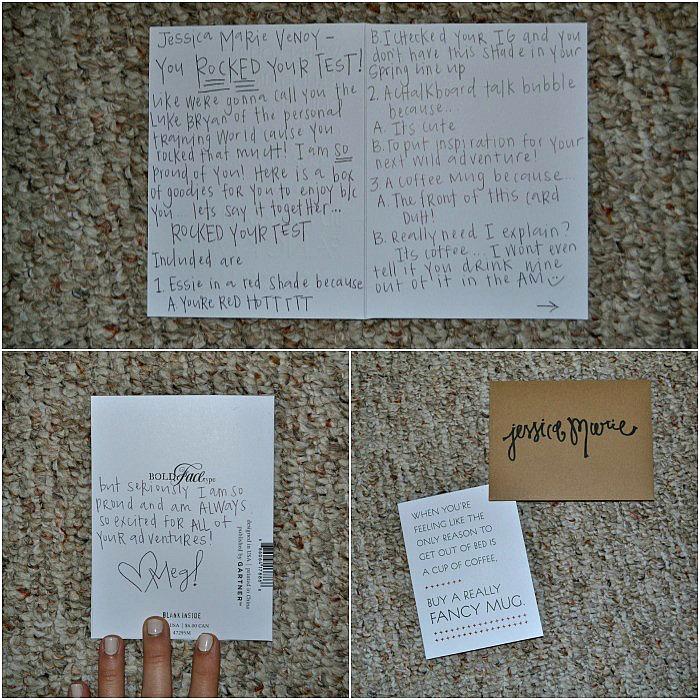 Jessica Marie Venoy -
You ROCKED Your TEST!
Like we're gonna call you the
Luke Bryan of the personal
training world cause you
rocked that much! I am so
proud of you! Here is a box
of goodies for you to enjoy b/c
you... lets say it together...
ROCKED YOUR TEST
Included are
1. Essie in a red shade because
A. You're Red HoTTTTTT
B. I checked your IG and you
don't have this shade in your
Spring line up
2. A chalkboard talk bubble
because....
A. Its cute
B. To put inspiration for your
next wild adventure!
3. A coffee mug because...
A. The front of this card
Duh!
B. Really need I explain?
Its coffee... I wont even
tell if you drink wine
out of it in the AM
BOLD Face type
but seriously I am so
proud and am ALWAYS
so excited for ALL of
your adventures!
Meg!
designed in USA | printed in China
published by GARTNER
BLANK INSIDE
USA | $6.00 CAN
47295M
jessica Marie
WHEN YOU'RE
FEELING LIKE THE
ONLY REASON TO
GET OUT OF BED IS
A CUP OF COFFEE,
BUY A REALLY
FANCY MUG.